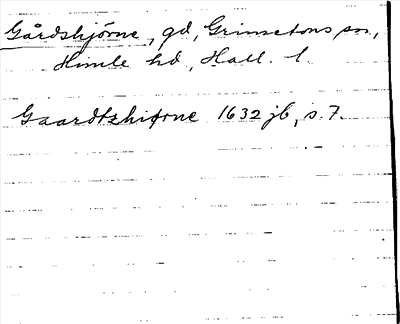 Gårdshjörne, gd, Grimetons sn,
Himle hd, Hall. l.
Gaardtzhiørne 1632 jb, s. 7.